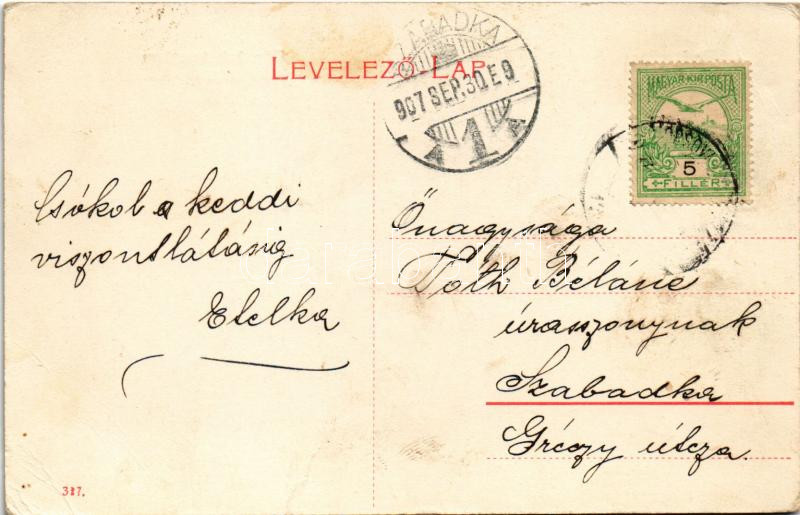 LEVELEZŐ LAP
SZABADKA
907 SEP. 30. E 9
A 1 A
MAGYAR KIR. POSTA
5
FILLÉR
Csókol a keddi
viszontlátásig
Etelka
Őnagysága
Tóth Béláné
úrasszonynak
Szabadka
Gréczy útcza.
317.